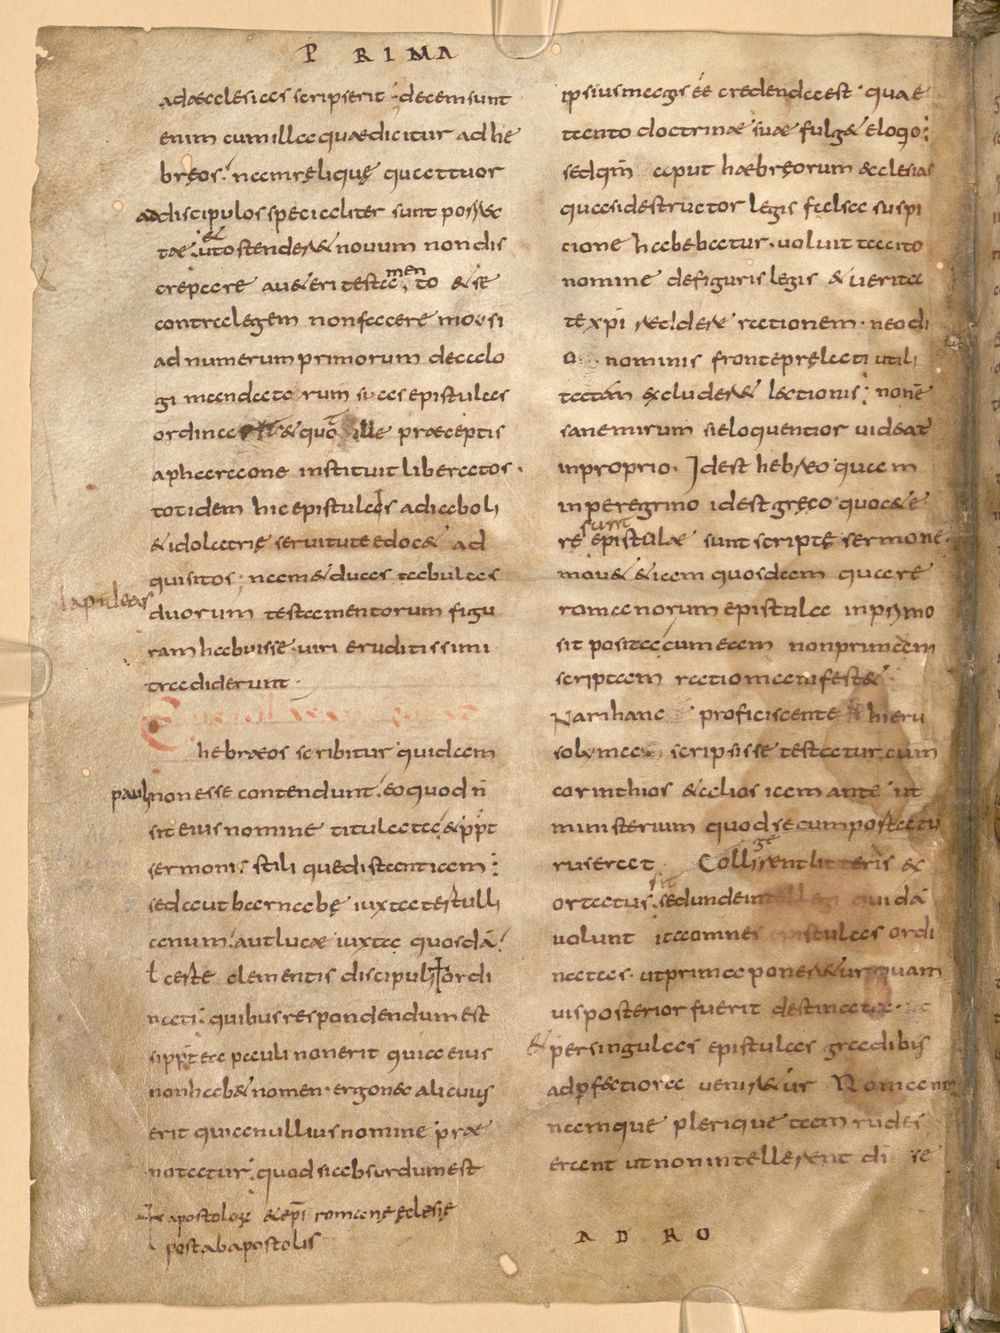 PRIMA
adaecclesias scripserit; decem sunt
enim cum illa quae dicitur ad he
bręos; nam reliquę quattuor
ad discipulos specialiter sunt porrec
tae; ut ostenderet & novum non dis
el
crepare a ueteri testa to & se
men
contra legem non facere moysi
ad numerum primorum decalo
gi mandatorum suas epistulas
ordina & quod ille praeceptis
a pharaone instituit liberatos.
totidem hic epistulis adiaboli
& idolatrię servitute edocet ad
quisitos; nam & duas tabulas
lapideas
duorum testamentorum figu
ram habuisse. viri eruditissimi
tradiderunt.
hebraeos scribitur quidam
pauli non esse contendunt. eo quod n̄
sit eius nomine titulata & ꝓpt
sermonis stili que distantiam;
sed aut barnabę iuxta tertulli
anum; aut lucae iuxta quosdā;
l certe clementis discipuli ordi
nati; quibus respondendum est
si ꝓpterea pauli non erit quia eius
non habet nomen. ergo nec alicuius
erit quia nullius nomine prae
notatur; quod si absurdum est
apostoloꝝ & epī romanę ęclesię
post ab apostolis
ipsius magis eē credenda est. quae
tanto doctrinae suae fulget eloqo;
sed qm̄ aput haebręorum ecclesias
quasi destructor legis falsa suspi
cione habebatur. voluit tacito
nomine de figuris legis & verita
te xpī reddere rationem. ne odi
o nominis fronte prelati utili
tatem excluderet lectionis; non ē
sane mirum si eloquentior videat
in proprio. Id est hebreo quam
in peregrino id est gręco quo cete
re epistulae sunt scriptę sermone.
sunt
mouet etiam quosdam quare
romanorum epistula in primo
sit posita cum eam non primam
scriptam ratio manifestet.
Nam hanc proficiscente hieru
solymam scripsisse testatur cum
corinthios & alios iam ante ut
ministerium quod secum postatu
rus erat Collisent litteris &
ge
ortatus. sed unde intellegi quidā
sit
volunt ita omnes epistulas ordi
natas. ut prima poneretur quam
vis posterior fuerit destinata.
& per singulas epistulas gradibus
ad ꝑfectiora veniretur Romano
namque plerique tam rudes
erant ut non intellegerent di re
AD RO